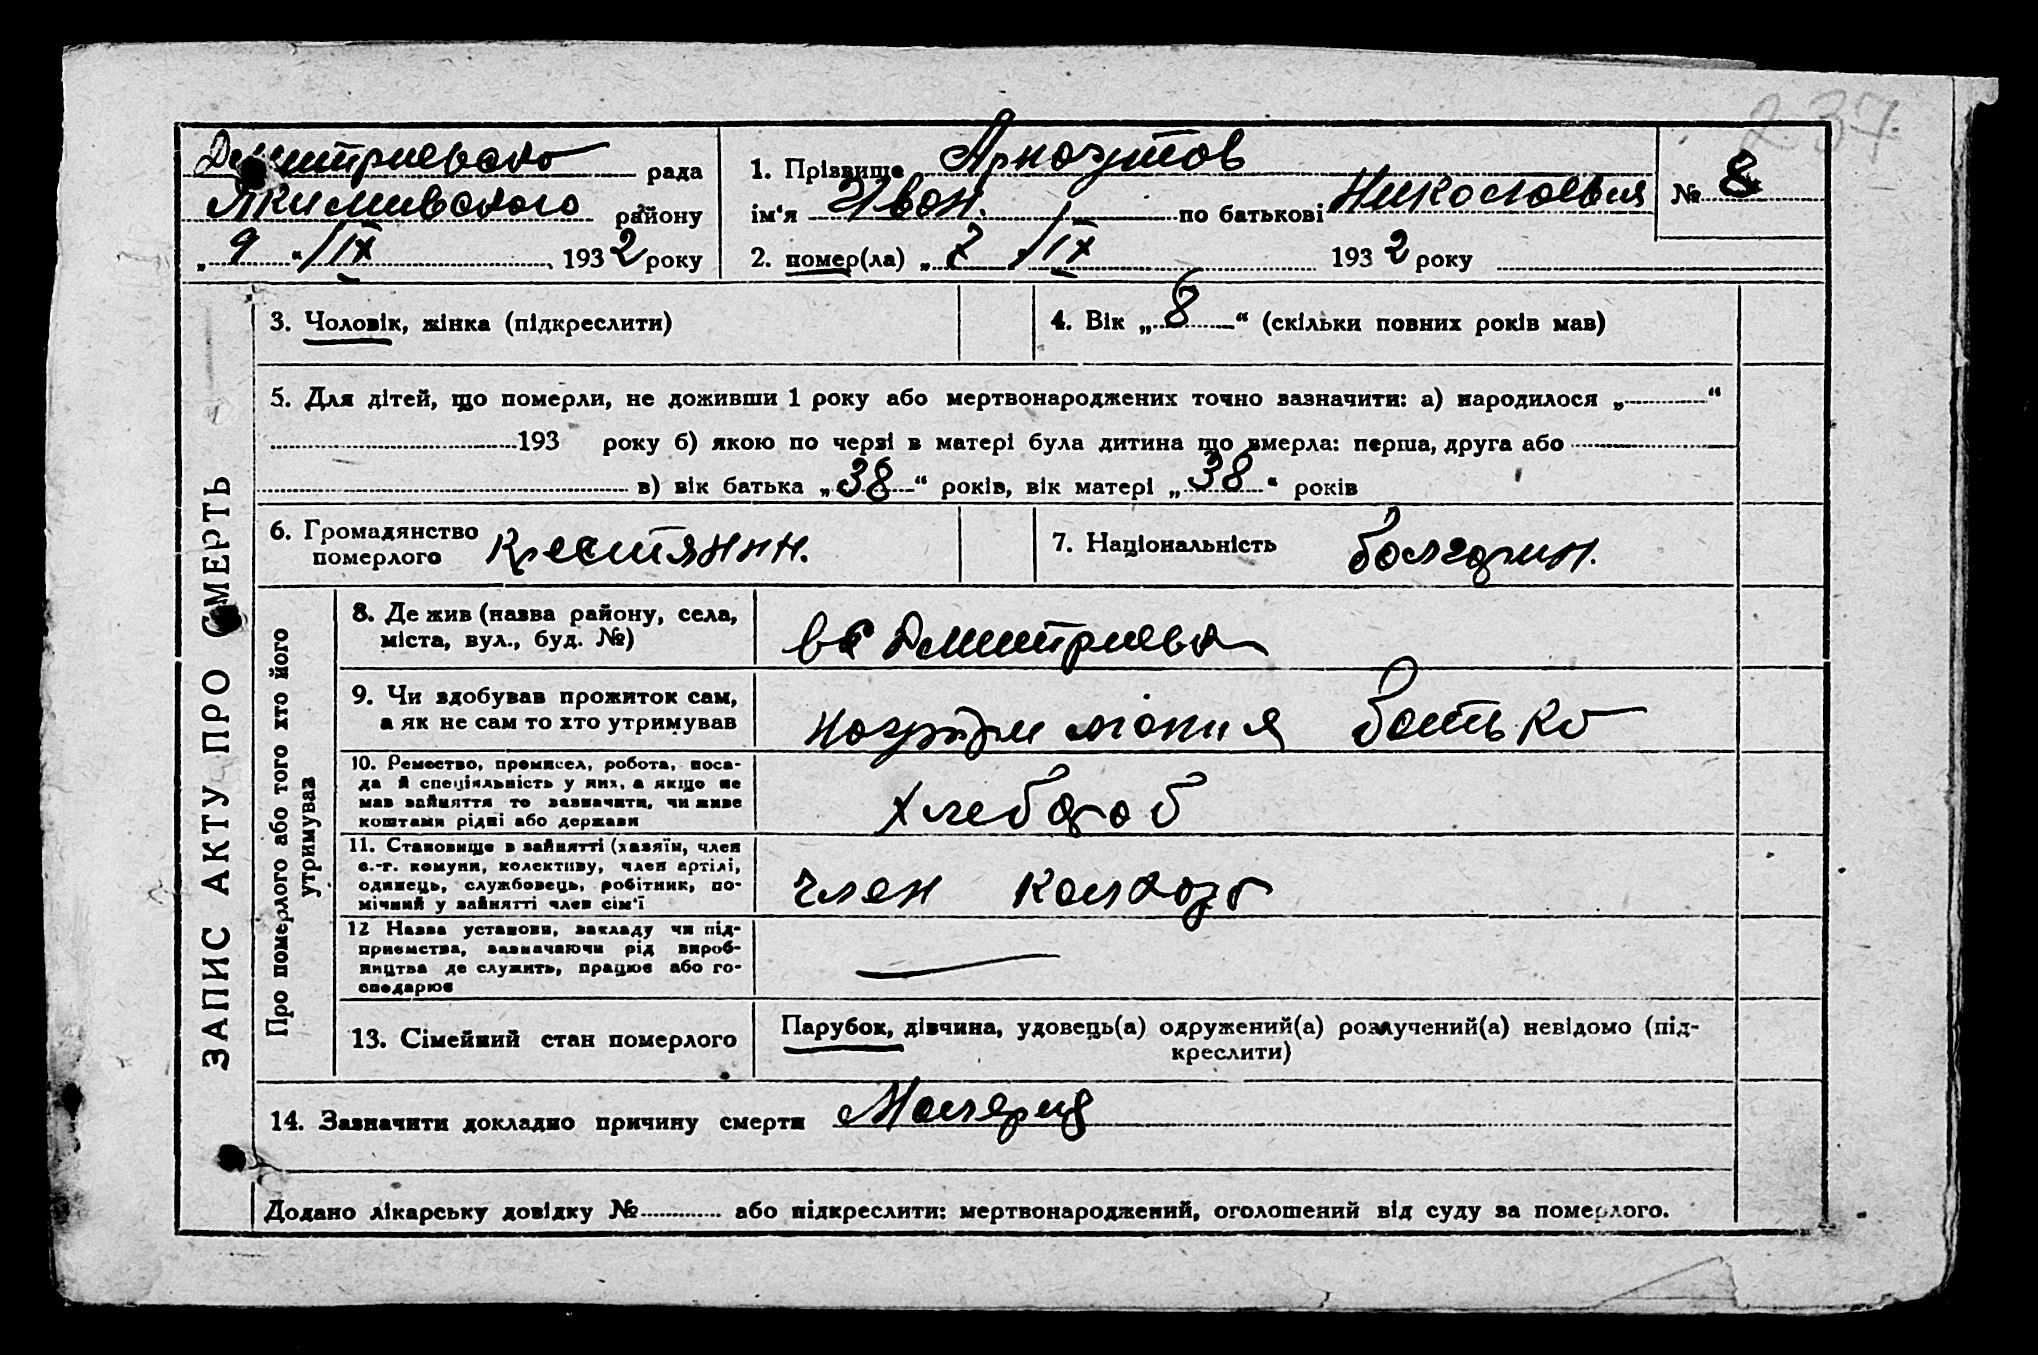 237
Дмитриевско рада
Якимивского району
„ 9 “ /IX 1932 року
1. Прізвище Арнаутов
ім‘я Иван. по батькові Николаевич
№ 8
2. помер(ла) „ 7 /IX 1932 року
ЗАПИС АКТУ ПРО СМЕРТЬ
3. Чоловік, жінка (підкреслити)
4. Вік „ 8 “ (скільки повних років мав)
5. Для дітей, що померли, не доживши 1 року або мертвонароджених точно зазначити: а) народилося „ “
193 року б) якою по черзі в матері була дитина що вмерла: перша, друга або
в) вік батька „ 38 “ років, вік матері „ 38 “ років
6. Громадянство
померлого Крестянин.
7. Національність болгарин.
Про померлого або того хто його
утримував
8. Де жив (назва району, села,
міста, вул., буд. №)
вс Дмитриевка
9. Чи здобував прожиток сам,
а як не сам то хто утримував
батько
10. Ремество, промисел, робота, поса-
да й спеціяльність у них, а якщо не
мав зайняття то зазначити, чи живе
коштами рідні або держави
хлебороб
11. Становище в зайнятті (хазяїн, член
с.-г. комуни, колективу, член артілі,
одинець, службовець, робітник, по-
мічний у зайнятті член сім‘ї
член колхоза
12 Назва установи, закладу чи під-
приємства, зазначаючи рід вироб-
ництва де служить, працює або го-
сподарює
13. Сімейний стан померлого
Парубок, дівчина, удовець(а) одружений(а) розлучений(а) невідомо (під-
креслити)
14. Зазначити докладно причину смерти Малярия
Додано лікарську довідку № або підкреслити: мертвонароджений, оголошений від суду за померлого.